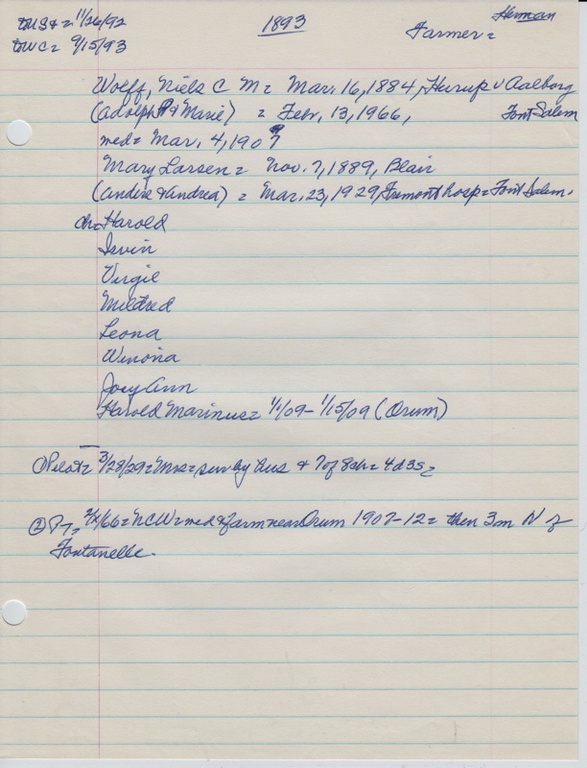 11/26/92
1893
Herman
WC = 9/15/93
Farmer =
Wolff, Niels C M = Mar. 16, 1884, Hurup v Aalborg
(Adolph & Marie) = Febr. 13, 1966, Font Salem
med = Mar. 4, 1907
Mary Larsen = Nov. 7, 1889, Blair
(Andrea) = Mar. 23, 1929, Fremont hosp = Font Salem.
ch = Harold
Irvin
Virgil
Mildred
Leona
Winona
Joey Ann
Harold Marinus = 1/1/09 - 1/15/09 (Orum)
① Pilot = 3/28/29 = Mrs = surv by hus & 7 of 8 ch = 4 d 3 s =
② = NCW = med & farm near Orum 1907-12 = then 3 m N of
Fontanelle.